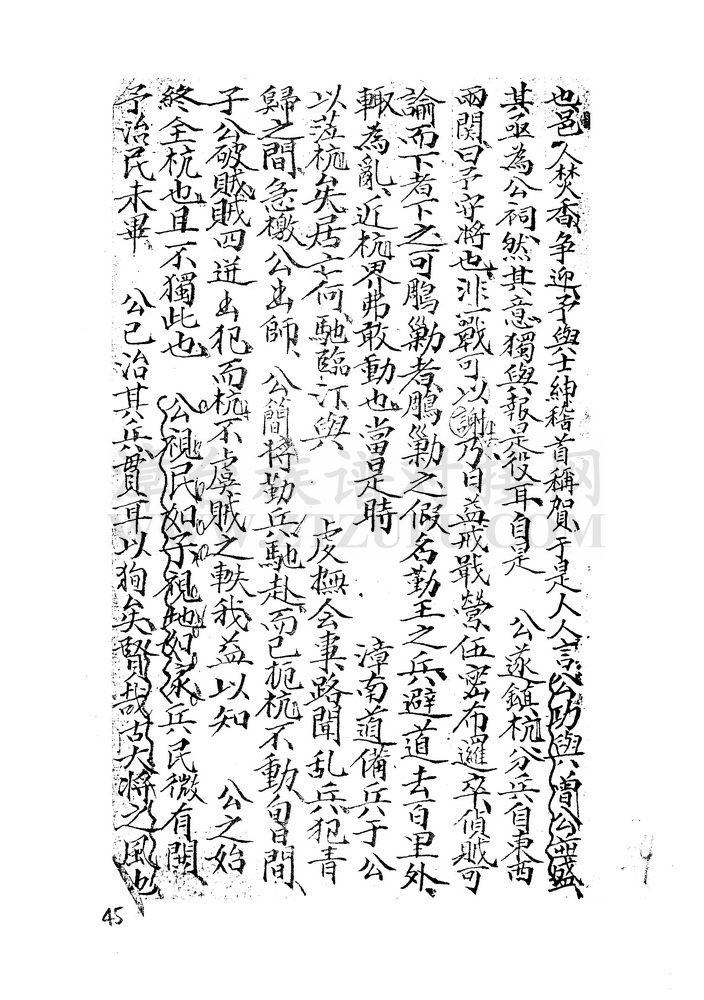 也邑人焚香争迎予與士紳稽首稱賀于是人人言公功與曾公並盛
其亟為公祠然其意獨與報是役耳自是　公遂鎮杭分兵自東西
兩関曰予守將也非一戰可以謝乃日益戒戰營伍密布邏卒偵賊可
論而下者下之可鵰巢勦者鵰巢勦之假名勤王之兵避道去百里外
輙為亂近杭界弗敢動也當是時　漳南道備兵于公
以蒞杭矣居亡何馳臨汀與　虔撫会事路聞乱兵犯青
歸之間急檄公出師　公簡將勤兵馳赴而已扼杭不動旬日間
子公破賊賊四逬出犯而杭不虞賊之軼我益以知　公之始
終全杭也且不獨此也　公視民如子視地如家兵民微有閼
予治民未畢　公已治其兵貫耳以狥矣賢哉古大將之風也
45